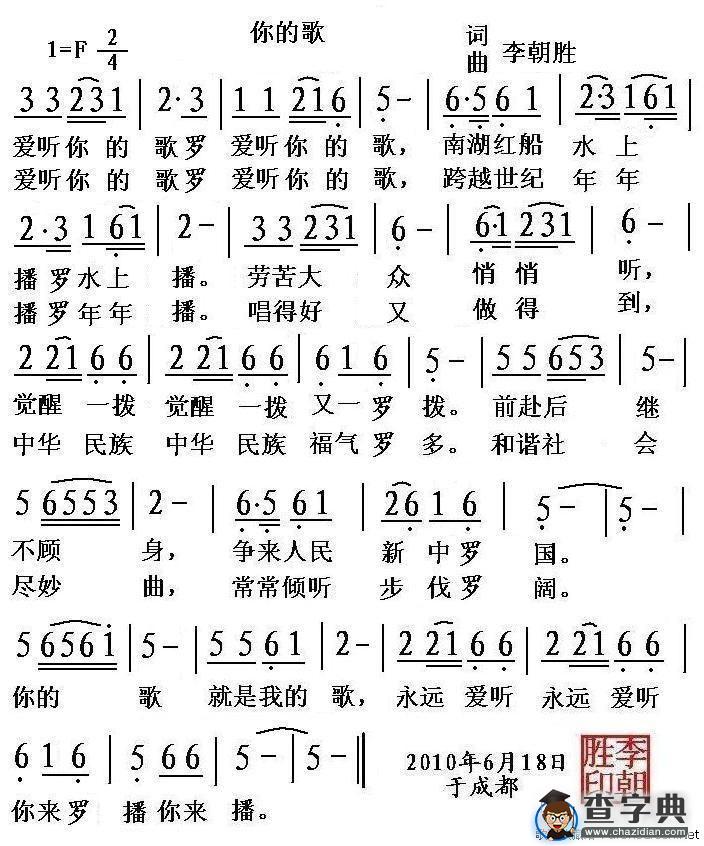 你的歌
1=F 2/4
词
曲 李朝胜
3 3 231 | 2·3 | 1 1 216 | 5 - | 6·5 6 1 | 2·3 161 |
爱听你 的 歌罗 爱听你 的 歌, 南湖红船 水 上
爱听你 的 歌罗 爱听你 的 歌, 跨越世纪 年 年
2·3 1 61 | 2 - | 3 3 231 | 6 - | 6·1 231 | 6 - |
播罗水上 播。 劳苦大 众 悄 悄 听,
播罗年年 播。 唱得好 又 做 得 到,
2 21 6 6 | 2 21 6 6 | 6 1 6 | 5 - | 5 5 653 | 5 - |
觉醒 一拨 觉醒 一拨 又一罗 拨。 前赴后 继
中华 民族 中华 民族 福气罗 多。 和谐社 会
5 6553 | 2 - | 6·5 6 1 | 26 1 6 | 5 - | 5 - |
不顾 身, 争来人民 新 中罗 国。
尽妙 曲, 常常倾听 步 伐罗 阔。
5 6561 | 5 - | 5 5 6 1 | 2 - | 2 21 6 6 | 2 21 6 6 |
你的 歌 就是我的 歌, 永远 爱听 永远 爱听
6 1 6 | 5 66 | 5 - | 5 - ‖
2010年6月18日
于成都
李朝胜印
你来罗 播你来 播。
查字典
www.chazidian.com